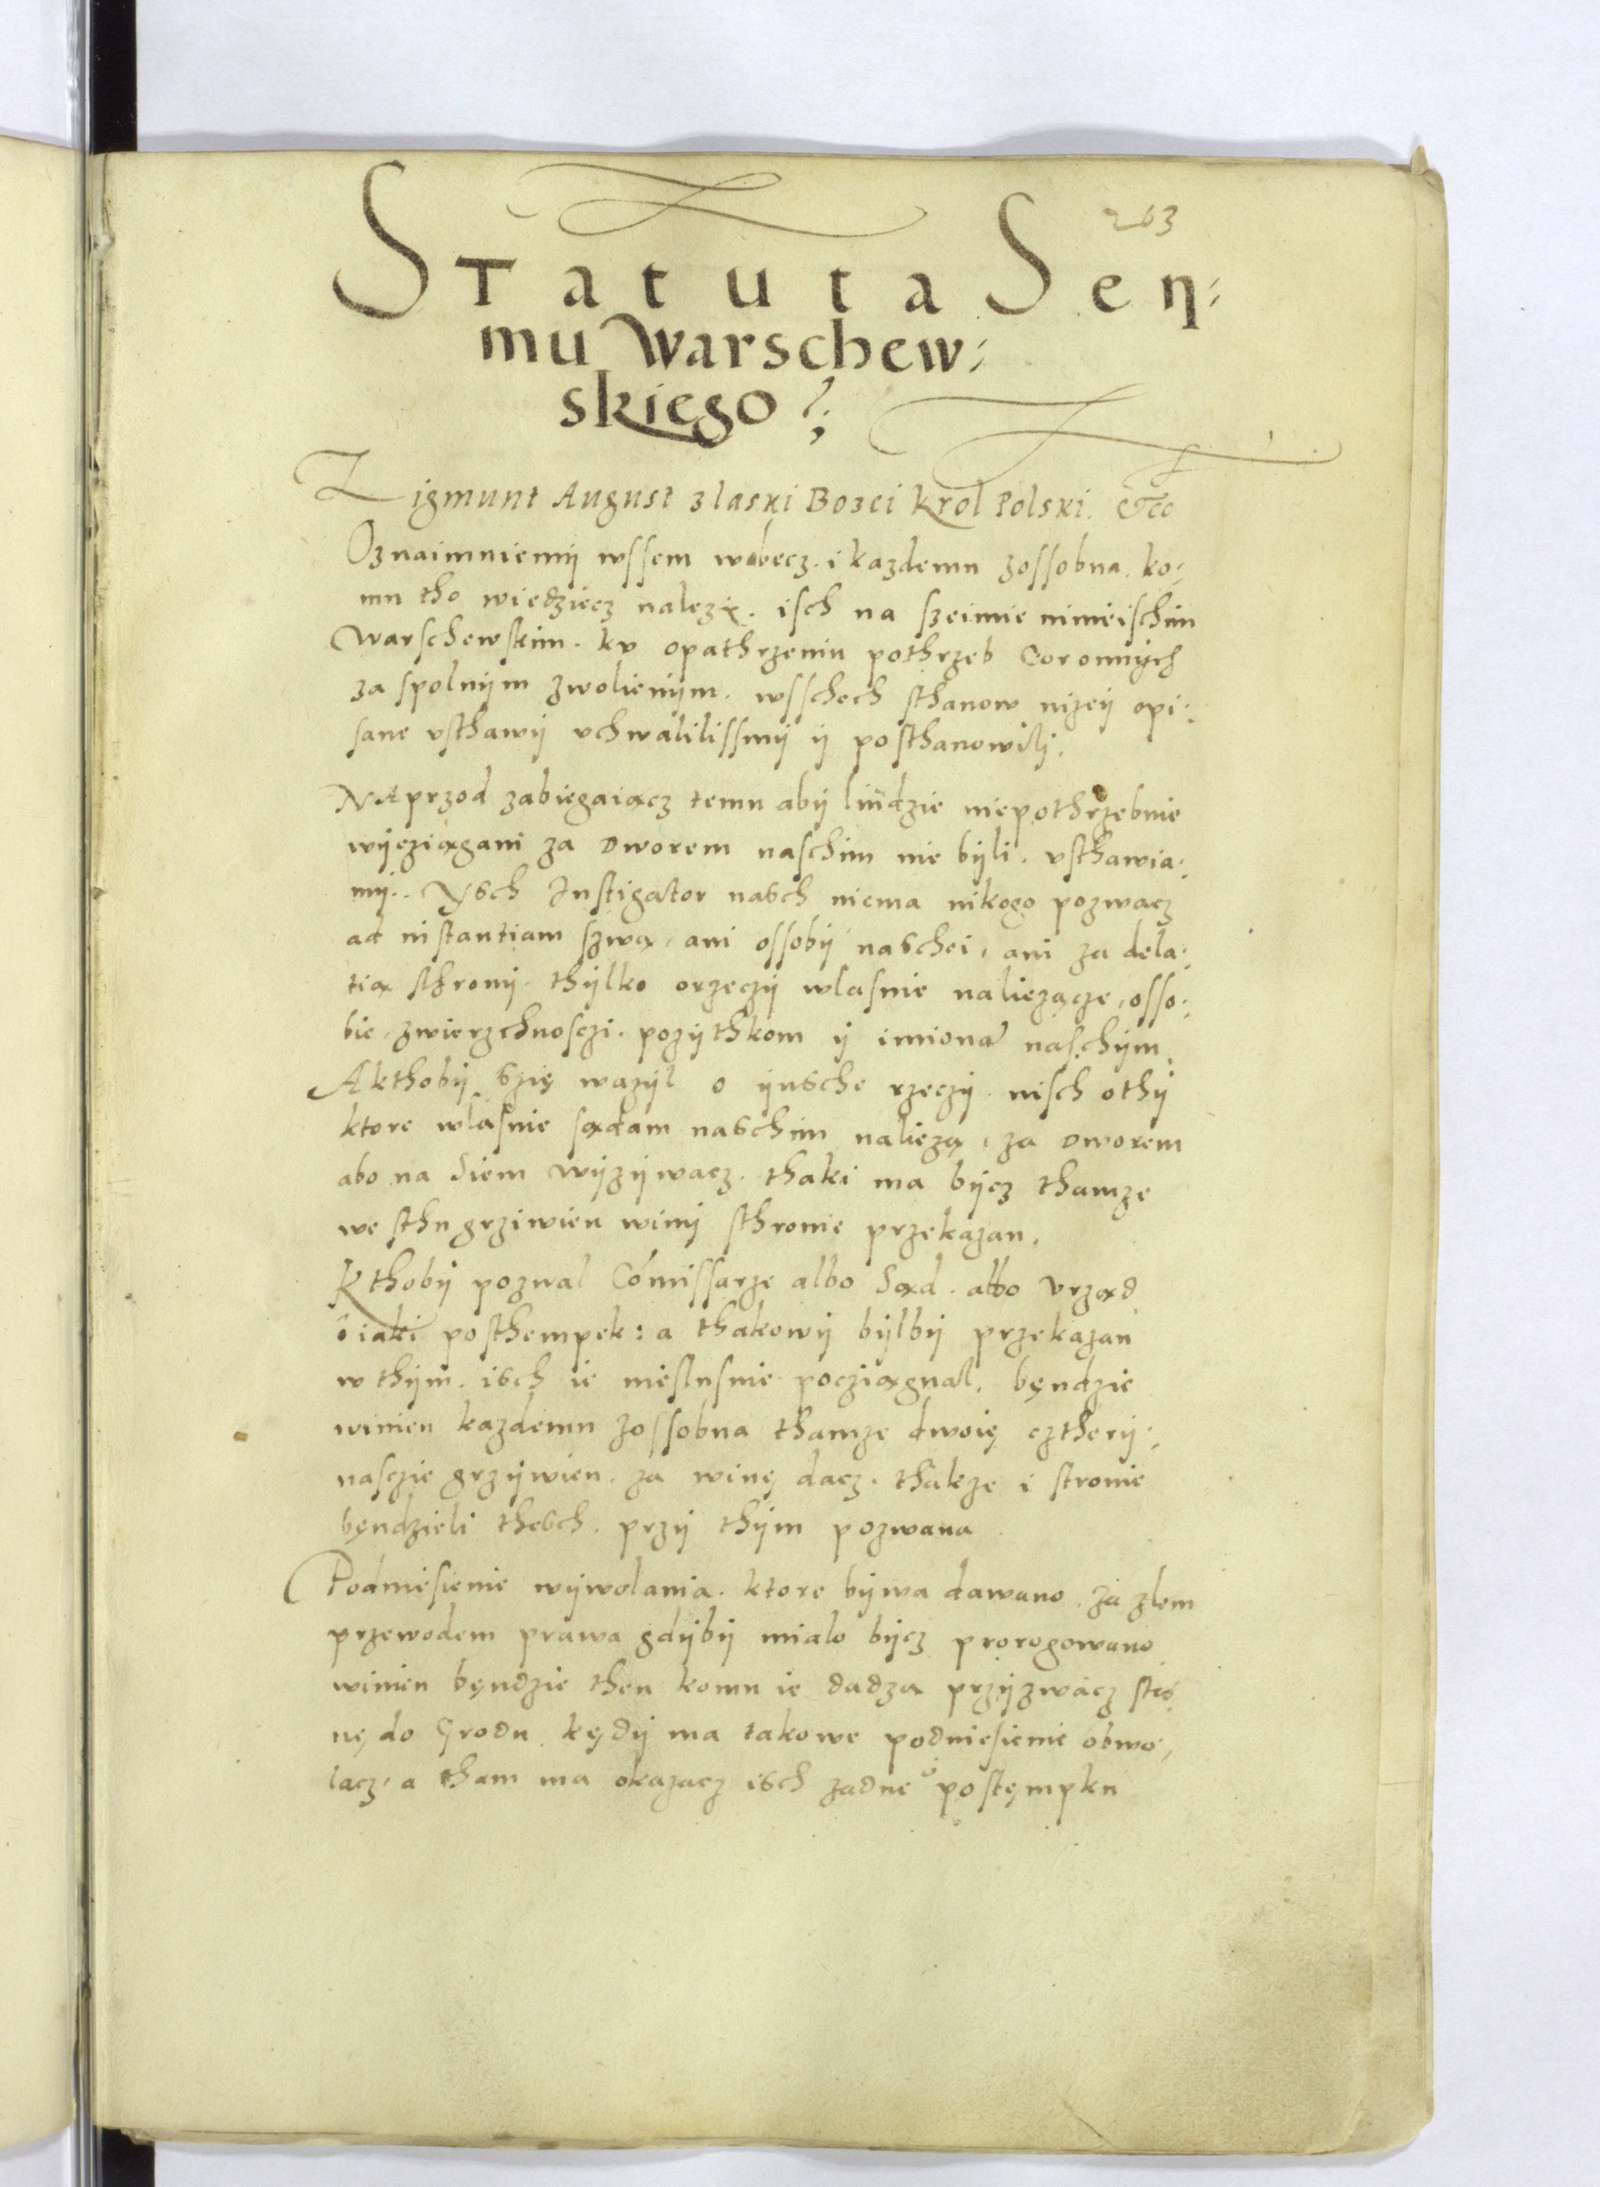 263
Statuta Seÿ⸗
mu Warschew⸗
skiego
Zigmunt August z laski Bozei Krol Polski. Etc
Oznaimniemÿ wssem wobecz. i kazdemu zossobna. ko⸗
mu tho wiedziecz nalezÿ. isch na szeimie ninieischim
Warschewskim. kv opathrzeniu pothrzeb Coronnÿch
za spolnÿm zwolienÿm. wsschech sthanow nizeÿ opi⸗
sane vsthawÿ vchwalilissmÿ ÿ posthanowilj.
NAprzod zabiegaiącz temu abÿ liudzie niepothrzebnie
wÿcziągani za dworem naschim nie bÿli. vsthawia⸗
mÿ. Ysch Instigator nasch niema nikogo pozwacz
ad instantiam szwą, ani ossobÿ naschei, ani za dela⸗
tią sthronÿ. thÿlko orzeczÿ wlasnie naliezącze, osso⸗
bie, zwierzchnosczi. pozÿthkom ÿ imionã naschÿm.
A kthobÿ szię wazÿl o ÿnsche rzeczÿ. nisch othÿ
ktore wlasnie sądam naschim naliezą, za dworem
abo na Siem wÿzÿwacz. thaki ma bÿcz thamze
we sthu grziwien winÿ sthronie przekazan.
Kthobÿ pozwal Comissarze albo Sąd. albo vrząd
o iaki posthempek: a thakowÿ bÿlbÿ przekazan
w thÿm. isch ie nieslusnie pocziągnal. bęndzie
winien kazdemu zossobna thamze dwoię cztherÿ⸗
nasczie grzÿwien. za winę dacz. thakze i stronie
bęndzieli thesch. przÿ thÿm pozwana
Podniesienie wÿwolania. ktore bÿwa dawano. za zlem
przewodem prawa gdÿbÿ mialo bÿcz prorogowano
winien bęndzie then komu ie dadzą przÿzwacz stro
nę do Grodu. kędÿ ma takowe podniesienie obwo⸗
lacz, a tham ma okazacz isch zadnego postęmpku